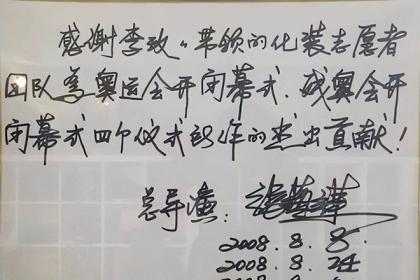 感谢李玫、带领的化装志愿者
团队为奥运会开闭幕式、残奥会开
闭幕式四个仪式所作的杰出贡献！
总导演：张艺谋
2008.8.8
2008.8.24